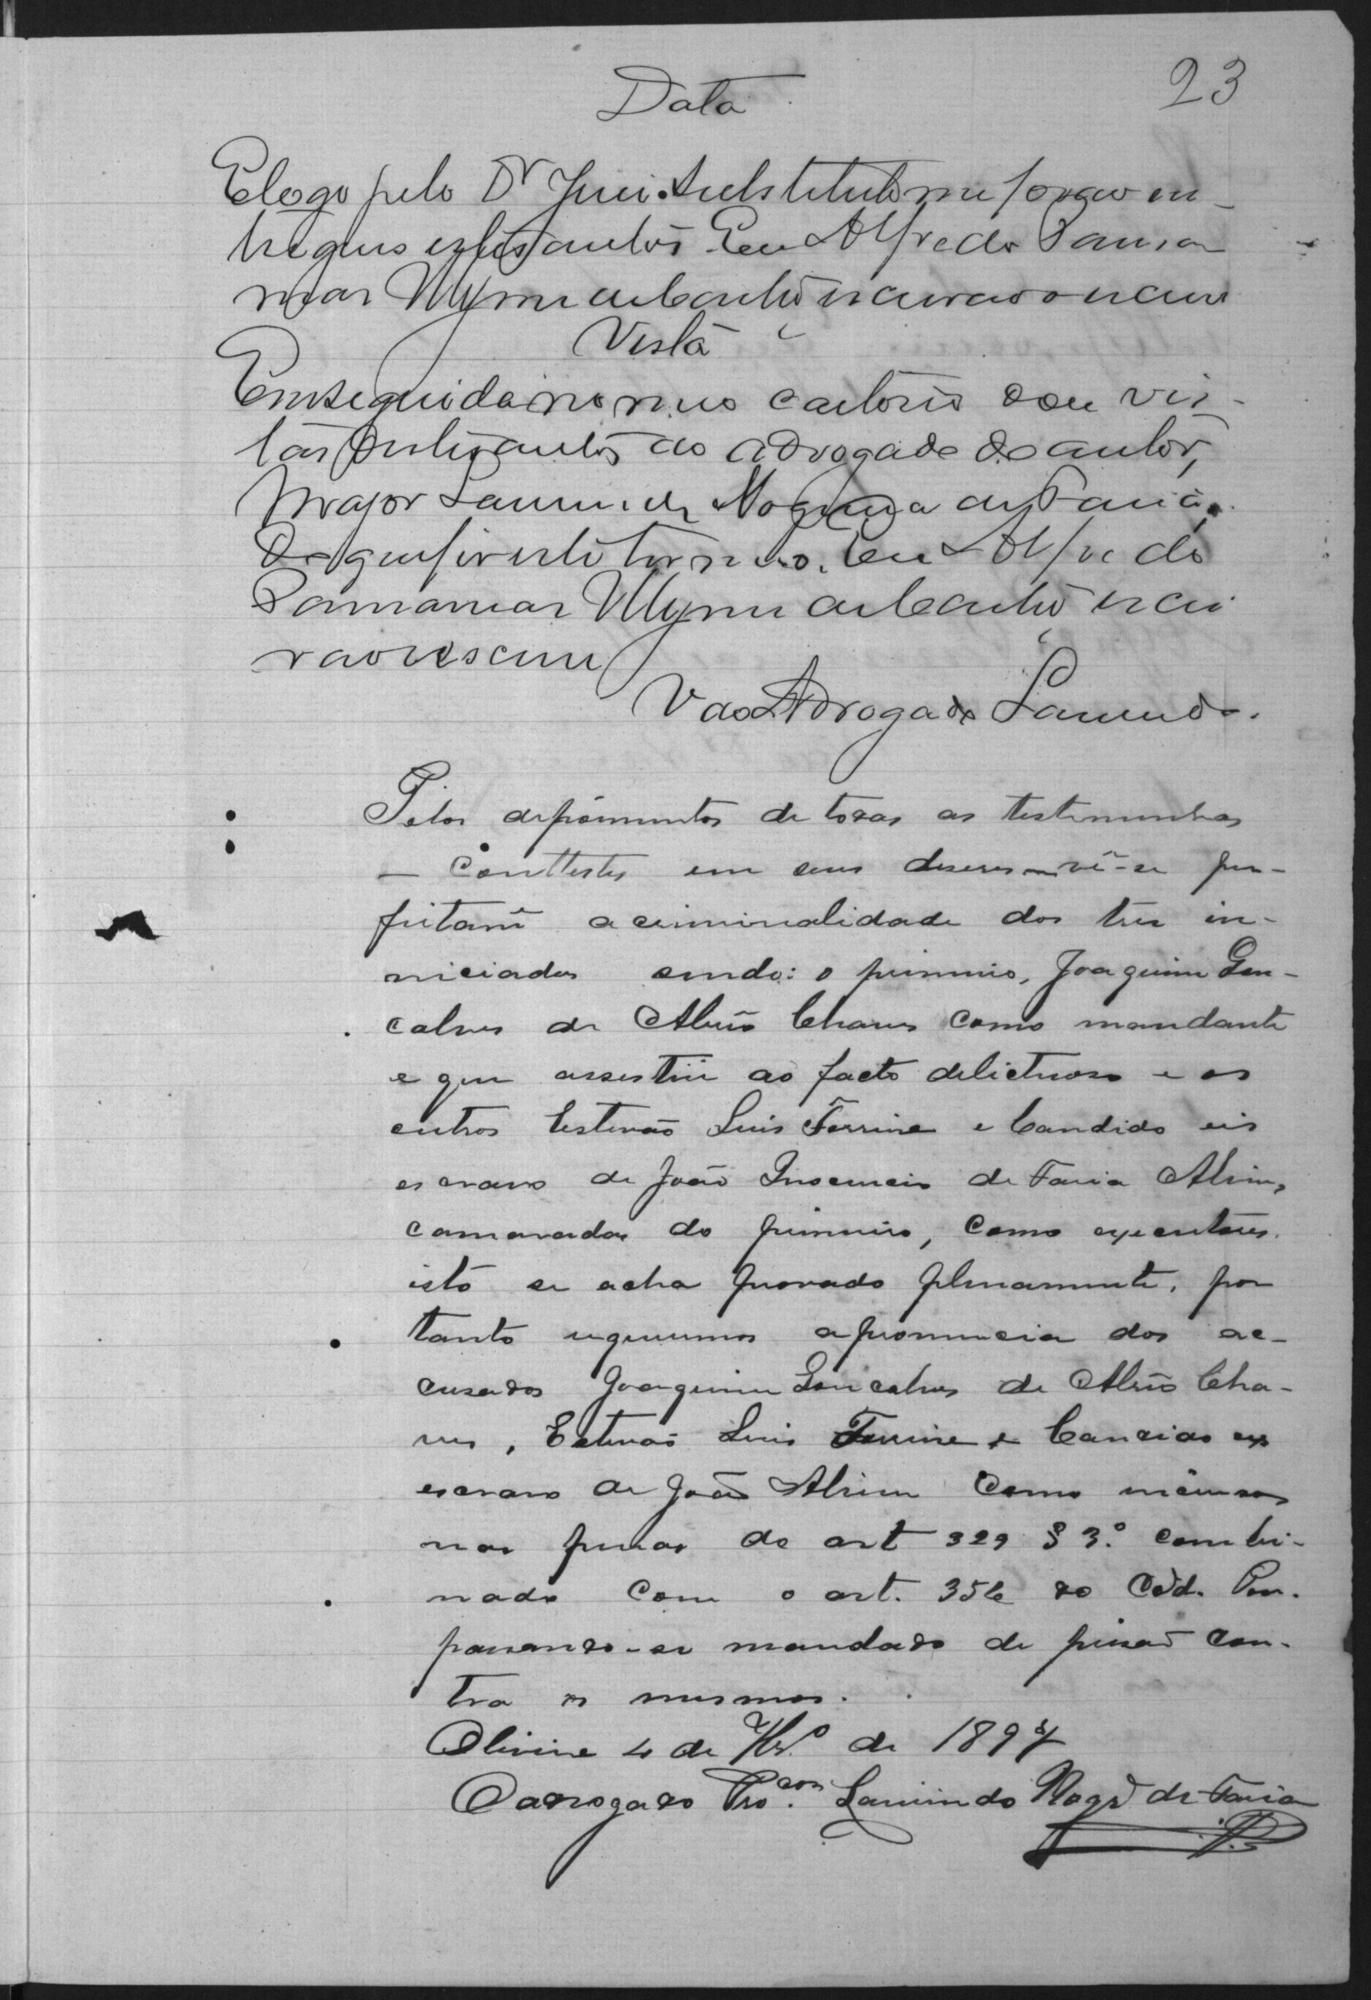 23
Data
E logo pelo Dr Juiz Substituto me forão en-
tregues estes autos Eu Alfredo
escrivão o escrevi
Vista
Em seguida no meu cartorio dou vis-
tas destes autos ao advogado do autor,
Major Laurindo Nogueira de Faria.
Do que fiz este termo. Eu Alfredo
escri
vão o escrevi
V ao Advogado Laurindo.
Pelos depoimentos de todas as testemunhas
– conttestes em seus vê-se per-
feitamte a criminalidade dos tres in-
niciados sendo: o primeiro, Joaquim Gon-
calves de Chaves como mandante
e que assestiu ao facto delictuoso e os
outros Estevão Luis Ferrire e Candido eis
escravo de João Inocencio de Faria Alvim,
camaradas do primeiro, como executores.
isto se acha provado plenamente, por
tanto requeremos a pronuncia dos ac-
cusados Joaquim Goncalves de Cha-
ves, Estevão Luis Ferrire e Candido ex
escravo de João Alvim como incursos
nas penas do art 329 § 3.º combi-
nado com o art. 356 do Cod. Pen.
passando-se mandado de prisão con-
tra os mesmos.
4 de 7br.º de 1897
O advogado Pro.cor Laurindo Nogra de Faria